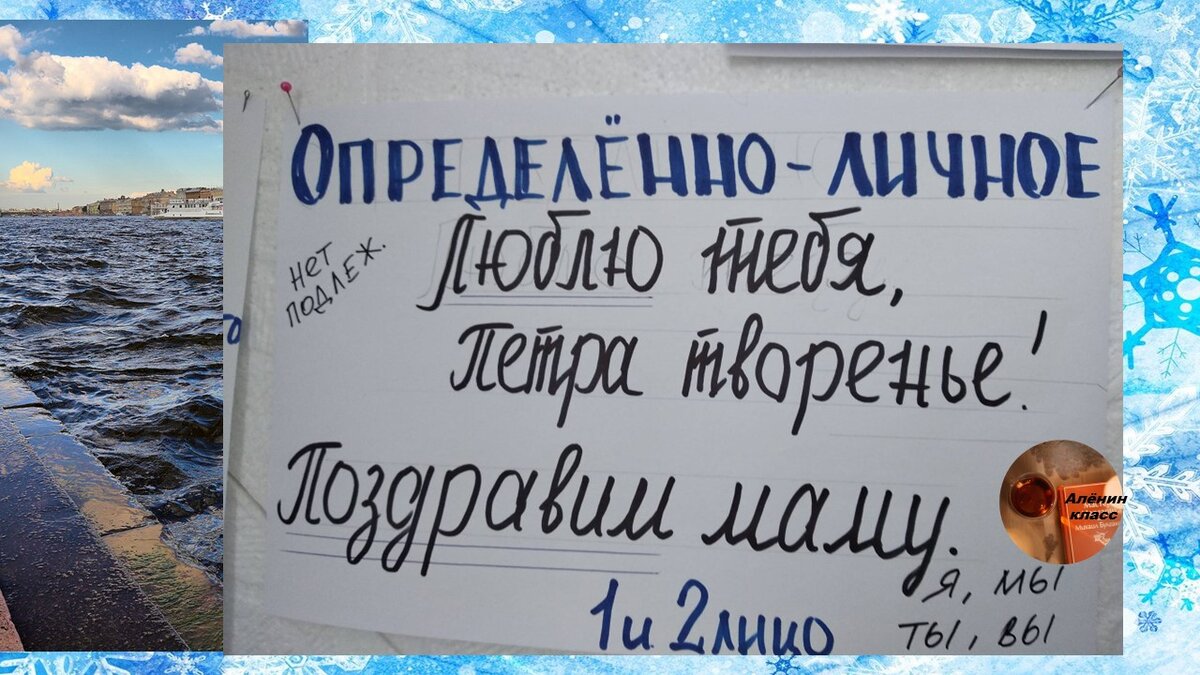 ОПРЕДЕЛЁННО-ЛИЧНОЕ
НЕТ
ПОДЛЕЖ.
Люблю тебя,
Петра творенье!
Поздравим маму.
1 и 2 лицо
Я, МЫ
ТЫ, ВЫ
Алёнин
класс